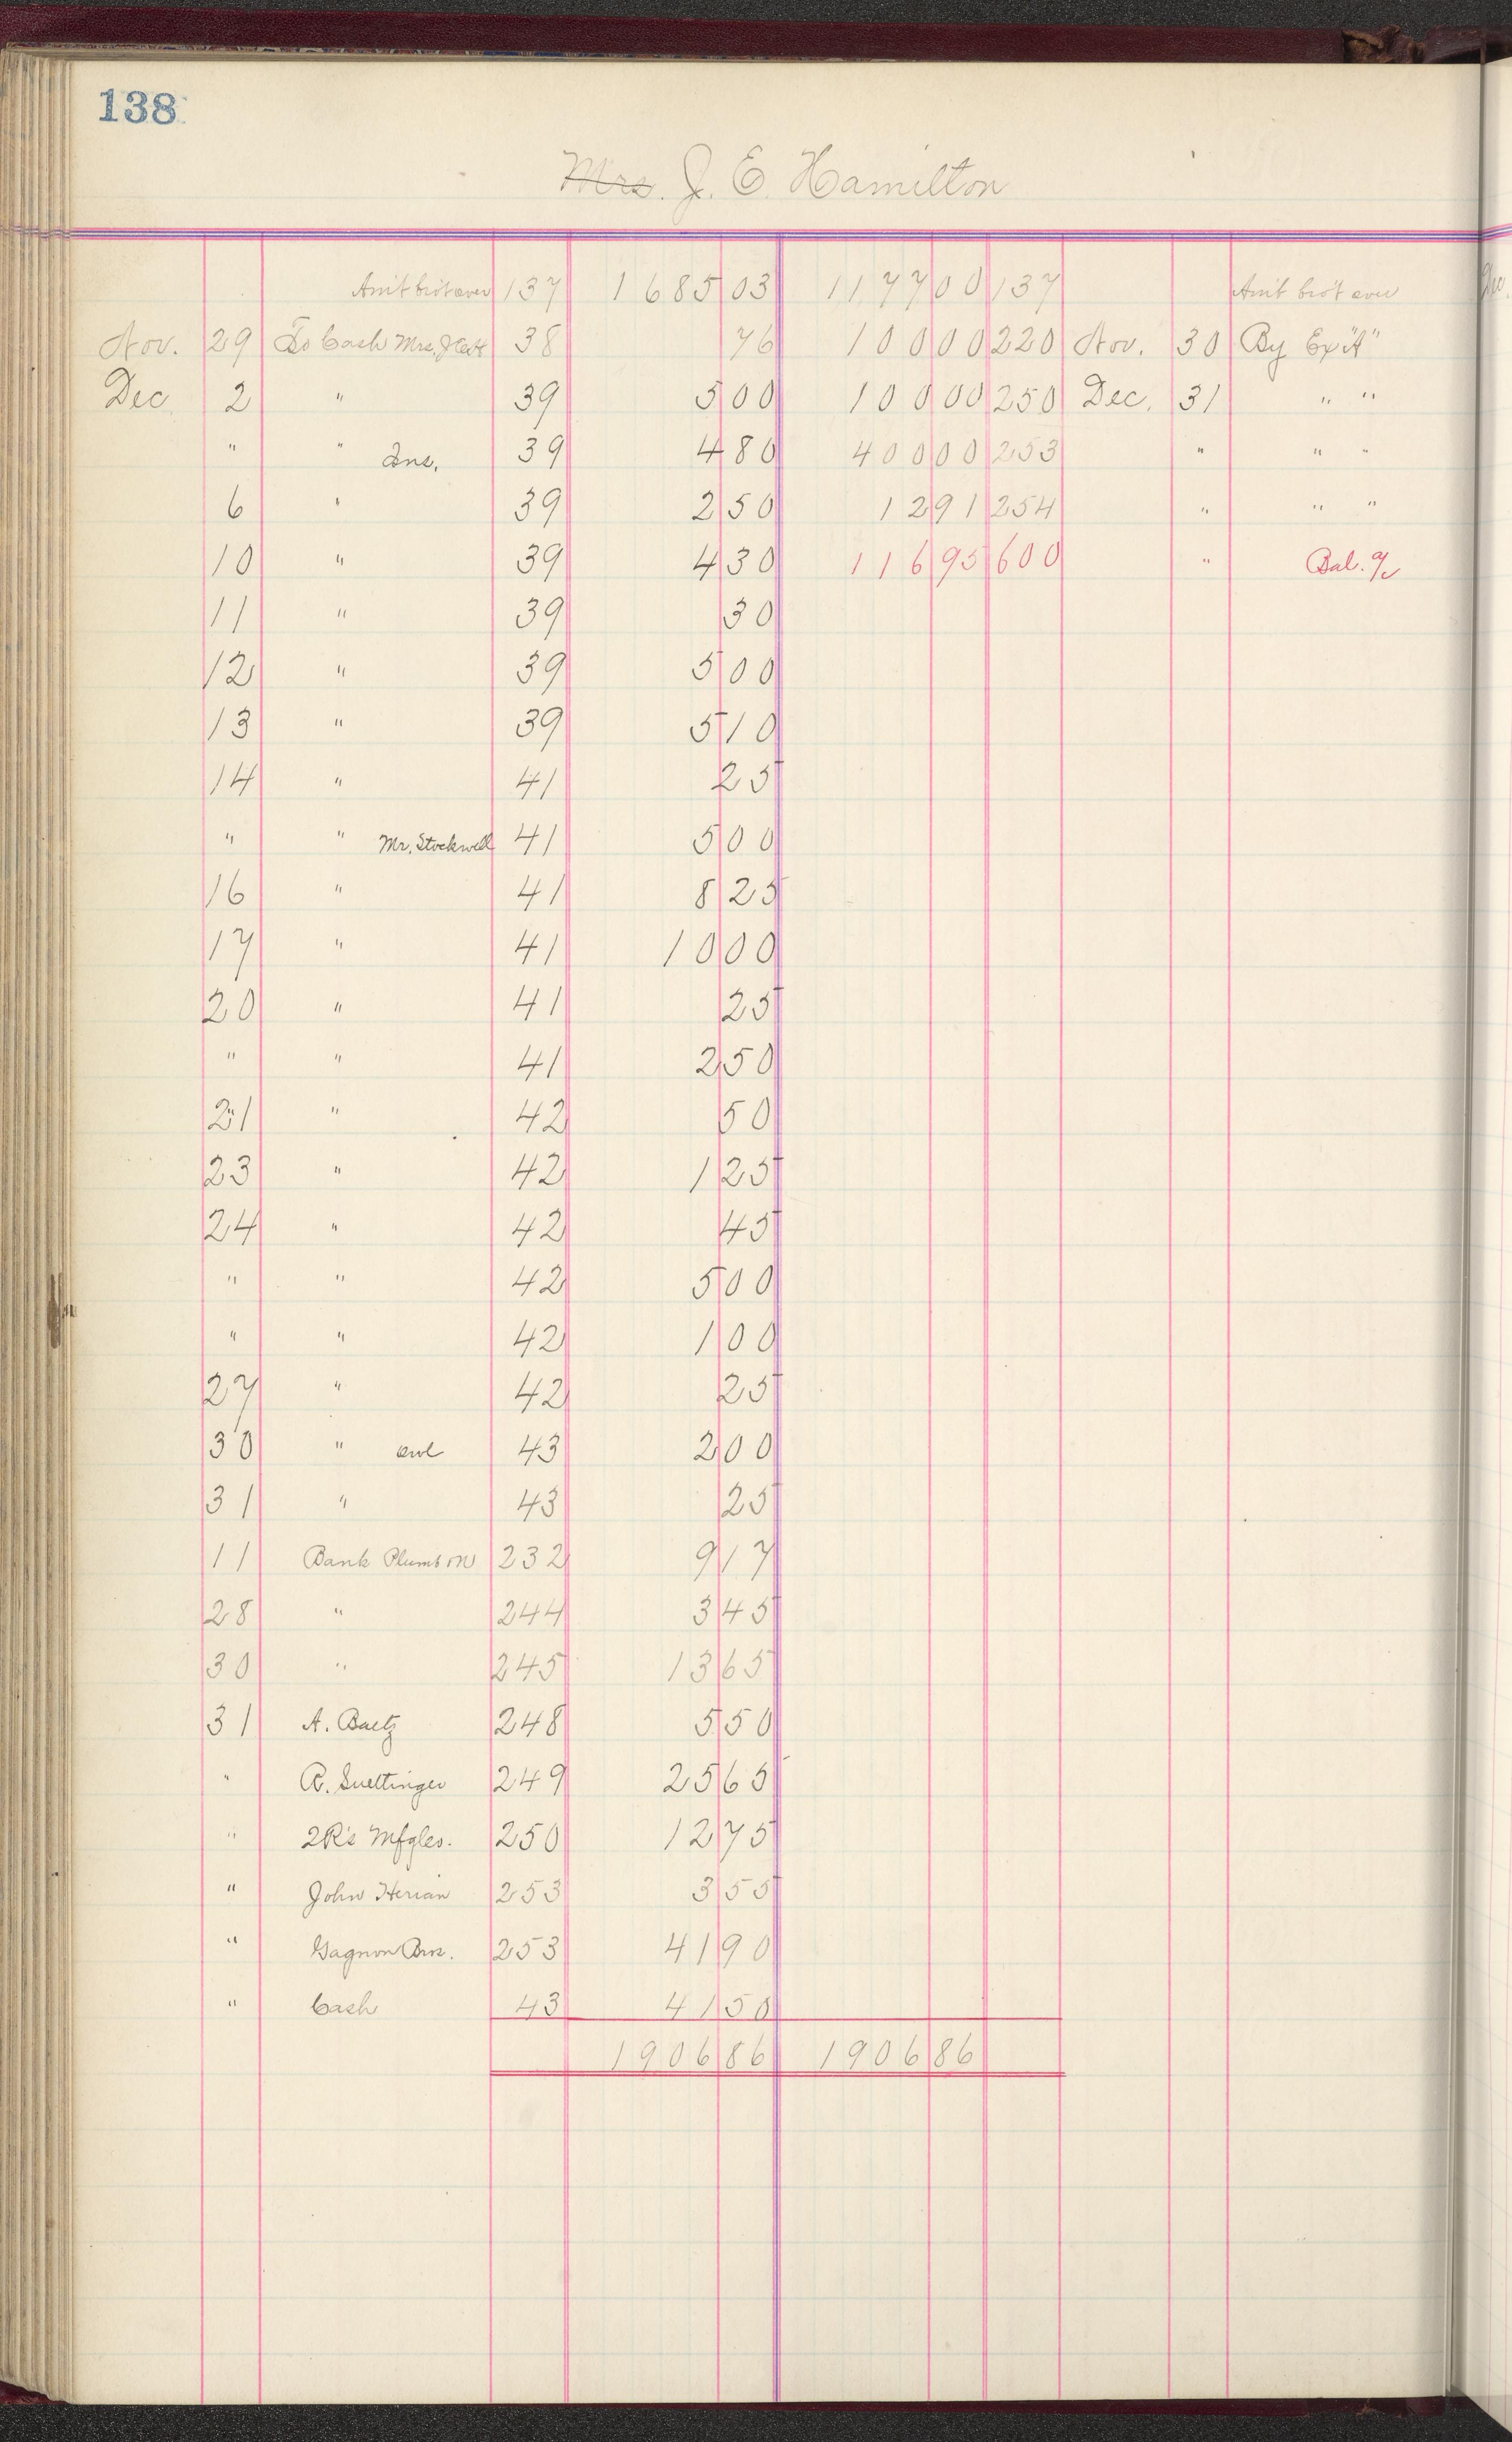 138
Mrs. J. E. Hamilton
Am't bro't over 137 1685 03 1177 00 137 Am't bro't over
Nov. 29 To Cash Mrs. 38 76 100 00 220 Nov. 30 By Ex "A"
Dec 2 " 39 5 00 100 00 250 Dec. 31 " "
" " Ins. 39 4 80 400 00 253 " " "
6 " 39 2 50 12 91 254 " " "
10 " 39 4 30 116 95 600 " Bal. a/c
11 " 39 30
12 " 39 5 00
13 " 39 5 10
14 " 41 25
" " Mr. Stockwell 41 5 00
16 " 41 8 25
17 " 41 10 00
20 " 41 25
" " 41 2 50
21 " 42 50
23 " 42 1 25
24 " 42 45
" " 42 5 00
" " 42 1 00
27 " 42 25
30 " 43 2 00
31 " 43 25
11 Bank Plumb on 232 9 17
28 " 244 3 45
30 " 245 13 65
31 A. Baetz 248 5 50
" R. Suettinger 249 25 65
" 2R's 250 12 75
" John Herian 253 3 55
" Gagnon Bros. 253 41 90
" Cash 43 41 50
1906 86 1906 86